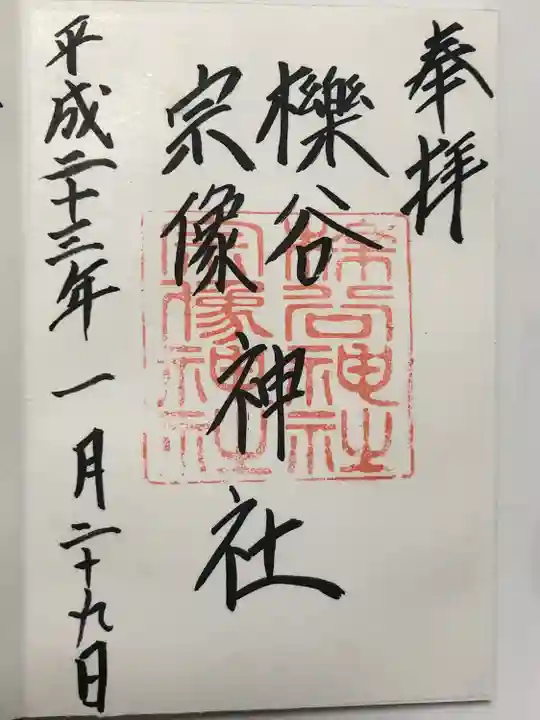 奉拝
櫟谷
宗像
神社
櫟谷神社
宗像神社
平成二十三年一月二十九日